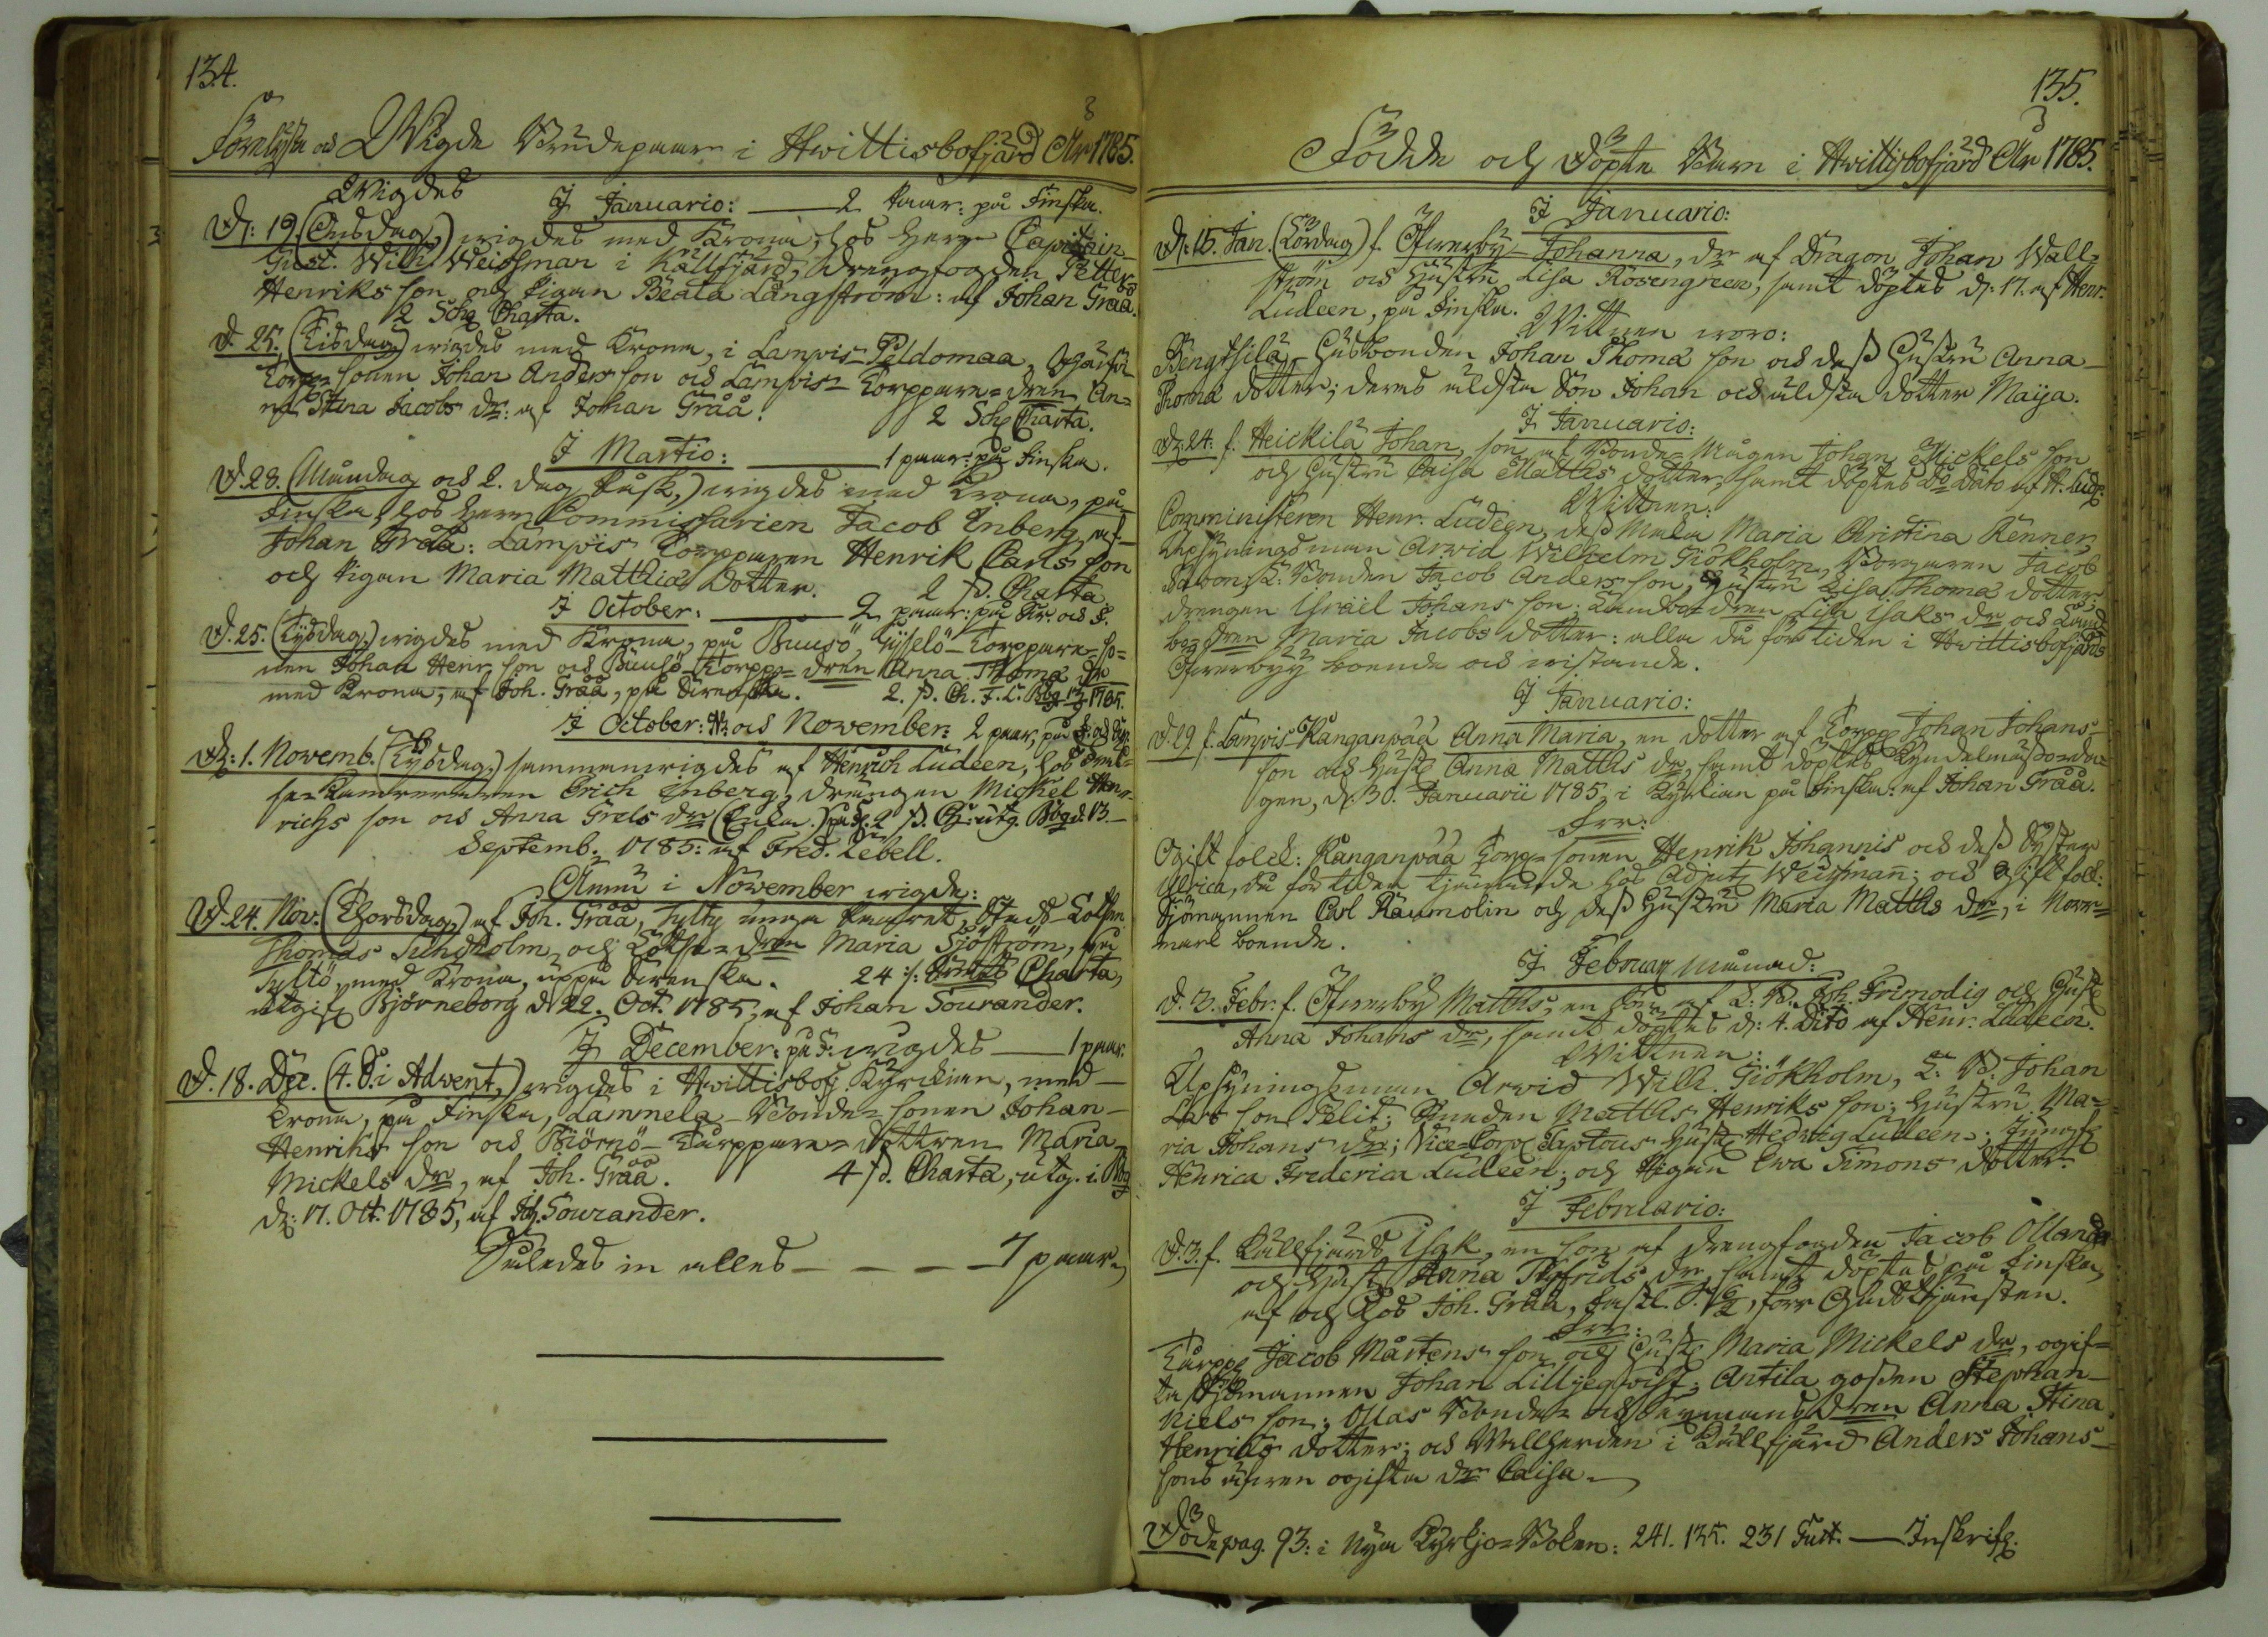 134.
Förelyste och Wigde Brudepaar i Hwittisbofjärd År 1785.
Wigdes I Januario: 2 Paar: på Finska.
D. 19. (Onsdag,) wigdes med Krona, hos Herr Capitain
Gust. Wilh. Weissman i Källfjärd, Drengfogden Petter
Henriks son och Pigan Beata Långström: af Johan Gråå.
2 Sch. Charta.
D. 25. (Tisdag) wigdes med Krona, i Lampis-Peldomaa,
Torp-sonen Johan Anders son och Lampis-Torppare-dren An-
na Stina Jacobs dr: af Johan Gråå. 2 Sch. Charta.
I Martio: 1 paar: på Finska.
D. 28. (Måndag och 2. dag Påsk,) wigdes med Krona, på
Finska, hos Herr Commissarien Jacob Enberg, af
Johan Gråå: Lampis Torpparen Henrik Carls son
och Pigan Maria Matthiæ dotter. 2 s. Charta
I October: 2 paar: på Sv. och F.
D. 25. (Tysdag,) wigdes med Krona, på Buusö, Torppare-so-
nen Johan Henr. son och Buusö-Torpp-dren Anna Thomæ dr
med Krona, af Joh. Gråå, på Swenska. 2. s. Ch. 1785.
I October: och November: 2 paar, på
D: 1. Novemb. (Tysdag,) sammanwigdes af Henrich Ludeen, hos
Erich Enberg, Drängen Michel Hen-
richs son och Anna Grels dr (Enka.) s. Ch. utg. Bbg d. 13.
Septemb. 1785: af Fred. Zebell.
Ännu i November wigde:
D. 24. Nov. (Thorsdag,) af Joh. Gråå, unga Paaret, Lotsen
Thomas Sundholm, och Lotse-dren Maria Sjöström, på
med Krona, uppå Swenska. 24 s. Charta,
utgif. Björneborg d. 22. Oct. 1785, af Johan Sourander.
I December: på F: wigdes 1 paar.
D. 18. Dec. (4. S. i Advent,) wigdes i Hwittisbofj. Kyrckian, med
Crona, på Finska, Lammela-Bonde-sonen Johan
Henriks son och Björnö-Torppare-dottren Maria
Mickels dr, af Joh. Gråå. 4 s. Charta, utg. i Bbg
d: 17. Oct. 1785, af Joh. Sourander.
Således in alles 7 paar.
135.
Födde och Döpte Barn i Hwittisbofjärd År 1785.
I Januario:
D. 15. Jan. (Lördag) f. Öfwerby-Johanna, dr af Dragon Johan Wall-
ström och Hustru Lisa Rosengreen, samt döptes d. 17. af Henr.
Ludeen, på Finska. Wittnen woro:
Bengtsilä-Husbonden Johan Thomæ son och dess Hustru Anna
Thomæ dotter; deras äldsta Son Johan och äldsta dotter Maija.
I Januario:
D. 24. f. Heickilä Johan, son af Bonde-Mågen Johan Mickels son
och Hustru Caisa Matths dotter, samt döptes Do Dato af H. Lud.
Wittnen.
Comministeren Henr. Ludeen, dess Maka Maria Christina Kenner,
Upsyningsman Arwid Wilhelm Giökholm, Borgaren Jacob
Bonden Jacob Anders son, Hustru Lisa Thomæ dotter,
drengen Israël Johans son; dren Lisa Isaks dr och Land-
bos dren Maria Jacobs dotter: alla då för tiden i Hwittisbofjärds
Öfwerby boende och wistande.
I Januario:
D. 29 f. Lampis-Kanganpää Anna Maria, en dotter af Torpp. Johan Johans
son och Hust. Anna Matths dr, samt döptes Kyndelmässoda-
gen, d. 30. Januarii 1785, i Kyrkian på Finska: af Johan Gråå.
Frr:
Ogift folck: Kanganpää Torp-sonen Henrik Johannis och dess Syster
Ulrica, då för tiden tjänande hos Adjut. Weissman; och gift folk:
Sjömannen Carl Raumolin och dess Hustru Maria Matths dr, i Norr-
mark boende.
I Februar Månad:
D. 3. Febr. f. Öfwerby Matths, en Son af L: B. Joh. Frimodig och Hust.
Anna Johans dr, samt döptes d: 4. Dito af Henr. Ludeen.
Wittnen:
Upsyningsman Arwid Wilh. Giökholm, L: B. Johan
Lars son Pelit; Smeden Matths Henriks son; Hustru Ma-
ria Johans dr; Vice-Corp. Hust. Hedvig Ludeen; Jungf.
Henrica Frederica Ludeen; och Pigan Ewa Simons dotter.
I Februario:
D. 3. f. Källfjärds Isak, en son af drengfogden Jacob Ollanda
och Hust. Anna Sigfrids dr, samt döptes på Finska,
af och hos Joh. Gråå, Fastl. S. 6/2, förr Gudstjänsten.
Frr:
Torpp. Jacob Mårtens son och Hust. Maria Mickels dr, ogif-
ta Sjömannen Johan Lilljeqwist; Antila gossen Stephan
Niels son; Ollas Bonde- och dren Anna Stina
Henriks dotter; och Wallherden i Källfjärd Anders Johans
sons äfwen ogifta dr Caisa.
Döde pag. 93: i Nya Kyrkjo-Boken: 241. 135. 231 Fatt. Inskrifs.